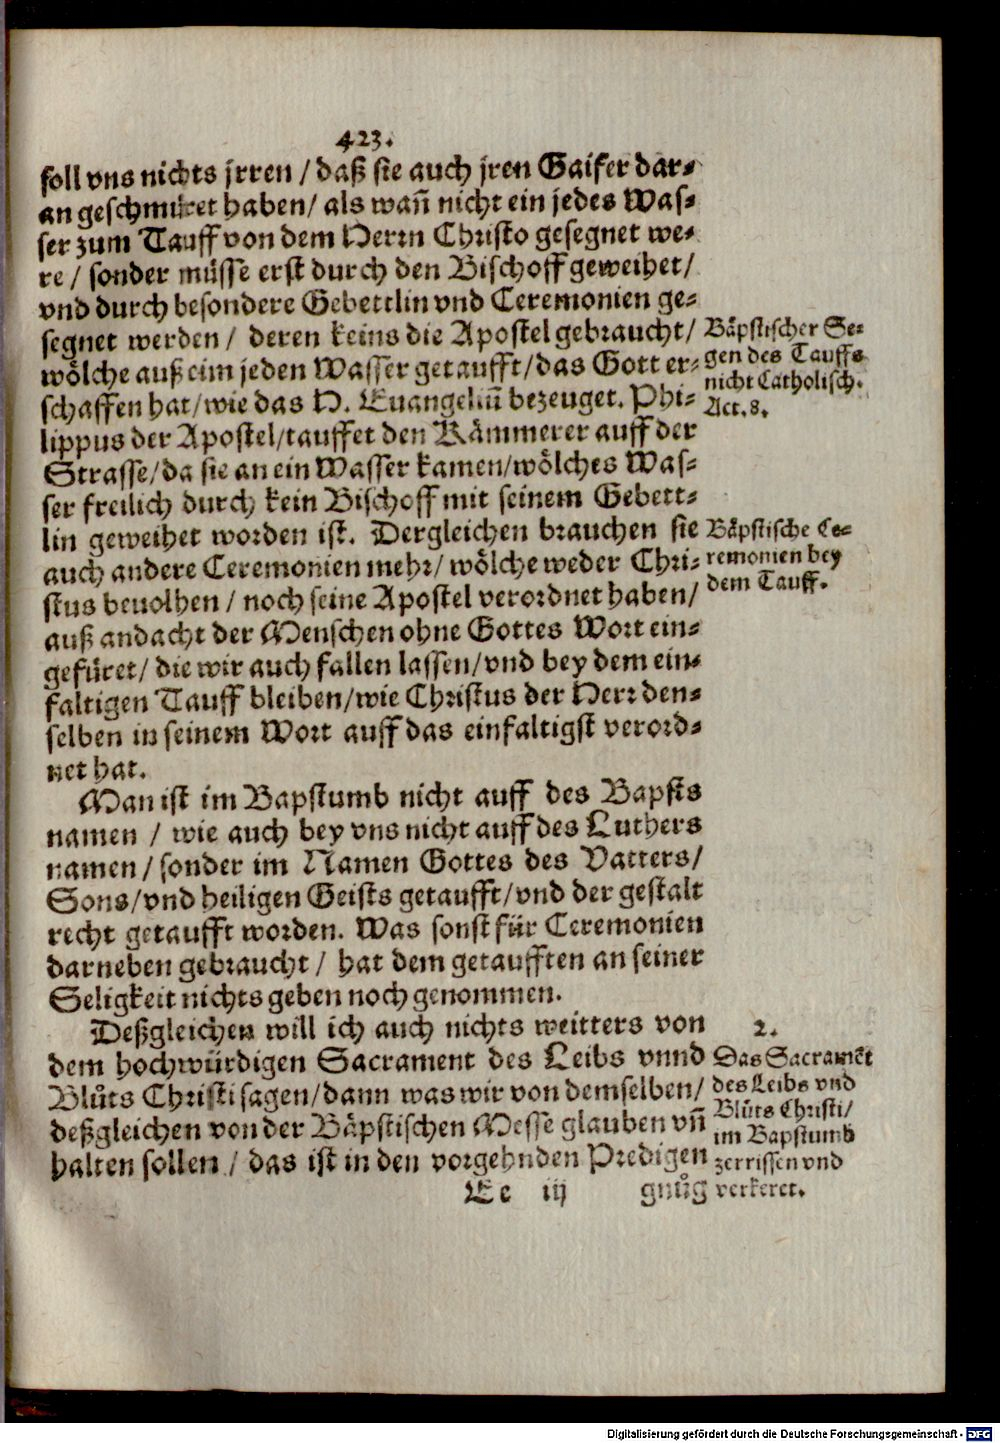 423.
soll vns nichts jrren / daß sie auch jren Gaifer dar⸗
an geschmüret haben / als wañ nicht ein jedes Was⸗
ser zum Tauff von dem Herrn Christo gesegnet we⸗
re / sonder müsse erst durch den Bischoff geweihet /
vnd durch besondere Gebettlin vnd Ceremonien ge⸗
segnet werden / deren keins die Apostel gebraucht /
wölche auß eim jeden Wasser getaufft / das Gott er⸗
schaffen hat / wie das H. Euangeliũ bezeuget. Phi⸗
lippus der Apostel / tauffet den Kämmerer auff der
Strasse / da sie an ein Wasser kamen / wölches Was⸗
ser freilich durch kein Bischoff mit seinem Gebett⸗
lin geweihet worden ist. Dergleichen brauchen sie
auch andere Ceremonien mehr / wölche weder Chri⸗
stus beuolhen / noch seine Apostel verordnet haben /
auß andacht der Menschen ohne Gottes Wort ein⸗
gefüret / die wir auch fallen lassen / vnd bey dem ein⸗
faltigen Tauff bleiben / wie Christus der Herr den⸗
selben in seinem Wort auff das einfaltigst verord⸗
net hat.
Bäpstischer Se⸗
gen des Tauffs
nicht Catholisch.
Act. 8.
Bäpstische Ce⸗
remonien bey
dem Tauff.
Man ist im Bapstumb nicht auff des Bapsts
namen / wie auch bey vns nicht auff des Luthers
namen / sonder im Namen Gottes des Vatters /
Sons / vnd heiligen Geists getaufft / vnd der gestalt
recht getaufft worden. Was sonst für Ceremonien
darneben gebraucht / hat dem getaufften an seiner
Seligkeit nichts geben noch genommen.
Deßgleichen will ich auch nichts weitters von
dem hochwürdigen Sacrament des Leibs vnnd
Blůts Christi sagen / dann was wir von demselben /
deßgleichen von der Bäpstischen Messe glauben vñ
halten sollen / das ist in den vorgehnden Predigen
2.
Das Sacramẽt
des Leibs vnd
Blůts Christi /
im Bapstumb
zerrissen vnd
verkeret.
Ee iij
gnůg
Digitalisierung gefördert durch die Deutsche Forschungsgemeinschaft - DFG